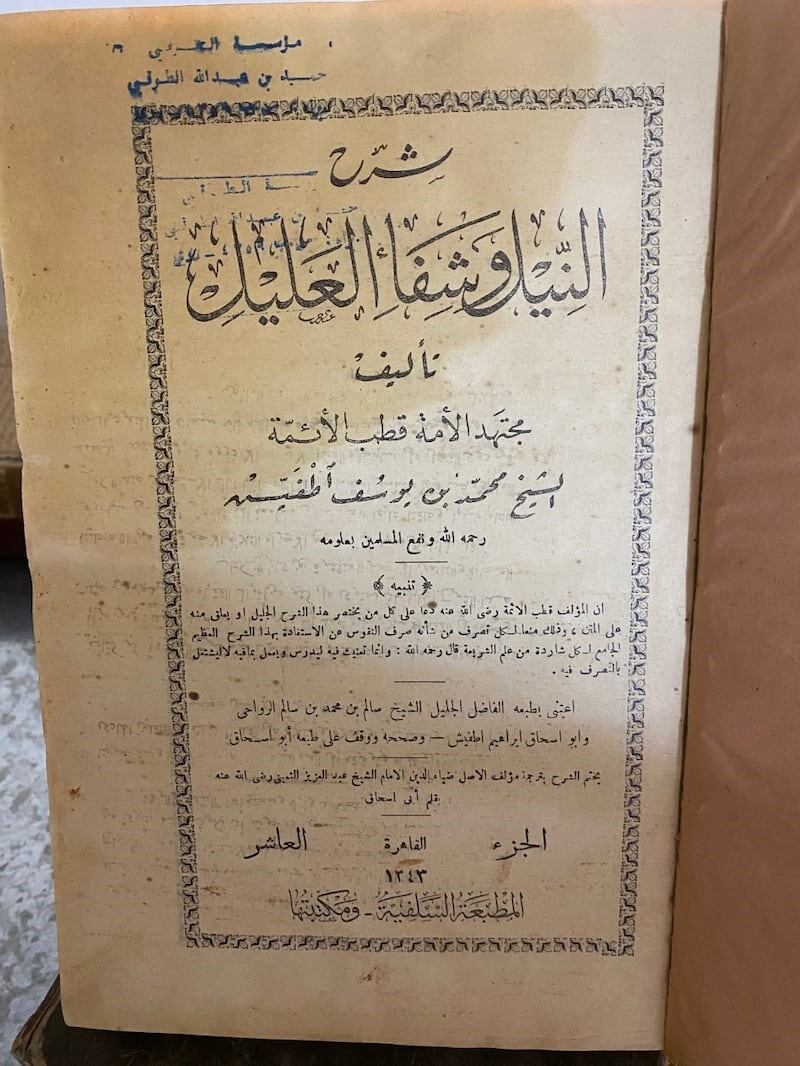 مؤسسة
بن عبدالله الطوقي
شرح
النيل وشفاء العليل
تأليف
مجتهد الأمة قطب الأئمة
الشيخ محمد بن يوسف أطفيش
رحمه الله ونفع المسلمين بعلومه
﴿ تنبيه ﴾
ان المؤلف قطب الائمة رضى الله عنه دعا على كل من يختصر هذا الشرح الجليل او يعلق منه
على المتن ، وذلك منعا لكل تصرف من شأنه صرف النفوس عن الاستفادة بهذا الشرح العظيم
الجامع لكل شاردة من علم الشريعة قال رحمه الله : وانما تعنيت فيه ليدرس ويعمل بمافيه لاليشتغل
بالتصرف فيه .
اعتنى بطبعه الفاضل الجليل الشيخ سالم بن محمد بن سالم الرواحى
وابو اسحاق ابراهيم اطفيش — وصححه ووقف على طبعه أبو اسحاق
يختم الشرح بترجمة مؤلف الاصل ضياء الدين الامام الشيخ عبد العزيز الثمينى رضى الله عنه
بقلم أبى اسحاق
الجزء القاهرة العاشر
١٣٤٣
المطبعة السلفية - ومكتبتها